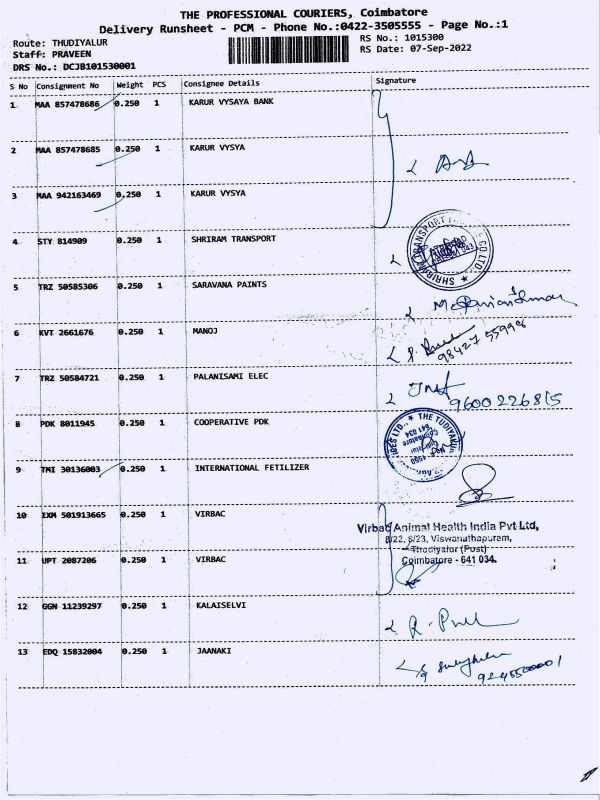 THE PROFESSIONAL COURIERS, Coimbatore
Delivery Runsheet - PCM - Phone No.:0422-3505555 - Page No.:1
Route: THUDIYALUR
Staff: PRAVEEN
DRS No.: DCJB101530001
RS No.: 1015300
RS Date: 07-Sep-2022
S No Consignment No Weight PCS Consignee Details Signature
1 MAA 857478686 0.250 1 KARUR VYSAYA BANK
2 MAA 857478685 0.250 1 KARUR VYSYA
3 MAA 942163469 0.250 1 KARUR VYSYA
4 STY 814909 0.250 1 SHRIRAM TRANSPORT
5 TRZ 50585306 0.250 1 SARAVANA PAINTS
6 KVT 2661676 0.250 1 MANOJ
98427 55998
7 TRZ 50584721 0.250 1 PALANISAMI ELEC
9600226815
8 PDK 8011945 0.250 1 COOPERATIVE PDK
9 TMI 30136003 0.250 1 INTERNATIONAL FETILIZER
10 IXM 501913665 0.250 1 VIRBAC
Virbac Animal Health India Pvt Ltd,
8/22, 8/23, Viswanathapuram,
Thudiyalur (Post)
Coimbatore - 641 034.
11 UPT 2087206 0.250 1 VIRBAC
12 GGN 11239297 0.250 1 KALAISELVI
13 EDQ 15832004 0.250 1 JAANAKI